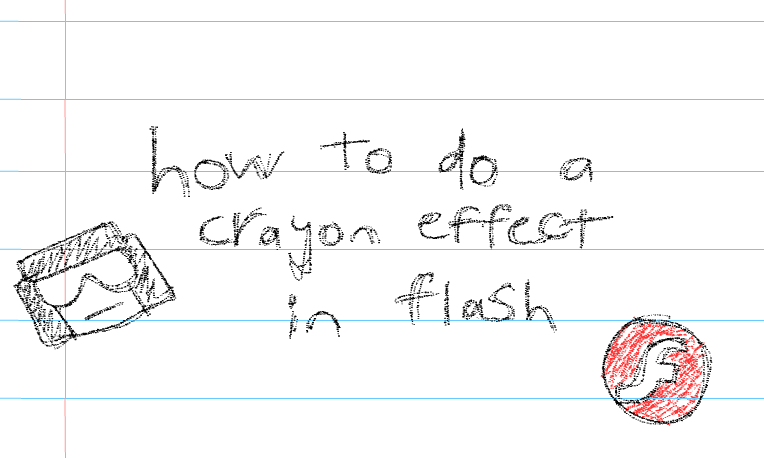 how to do a
crayon effect
in flash